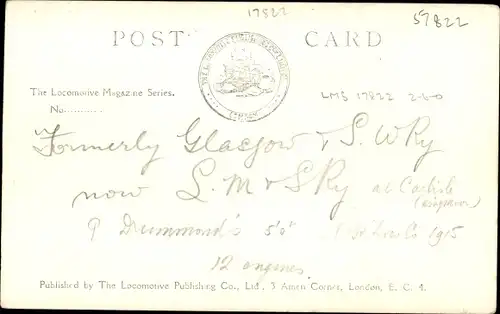 17822
57822
POST CARD
The Locomotive Magazine Series.
No...........
LMS 17822 2-6-0
Formerly Glasgow & S. W Ry
now L. M & S Ry at Carlisle
P Drummond's 5'0" 1915
12 engines.
Published by The Locomotive Publishing Co., Ltd., 3 Amen Corner, London, E. C. 4.